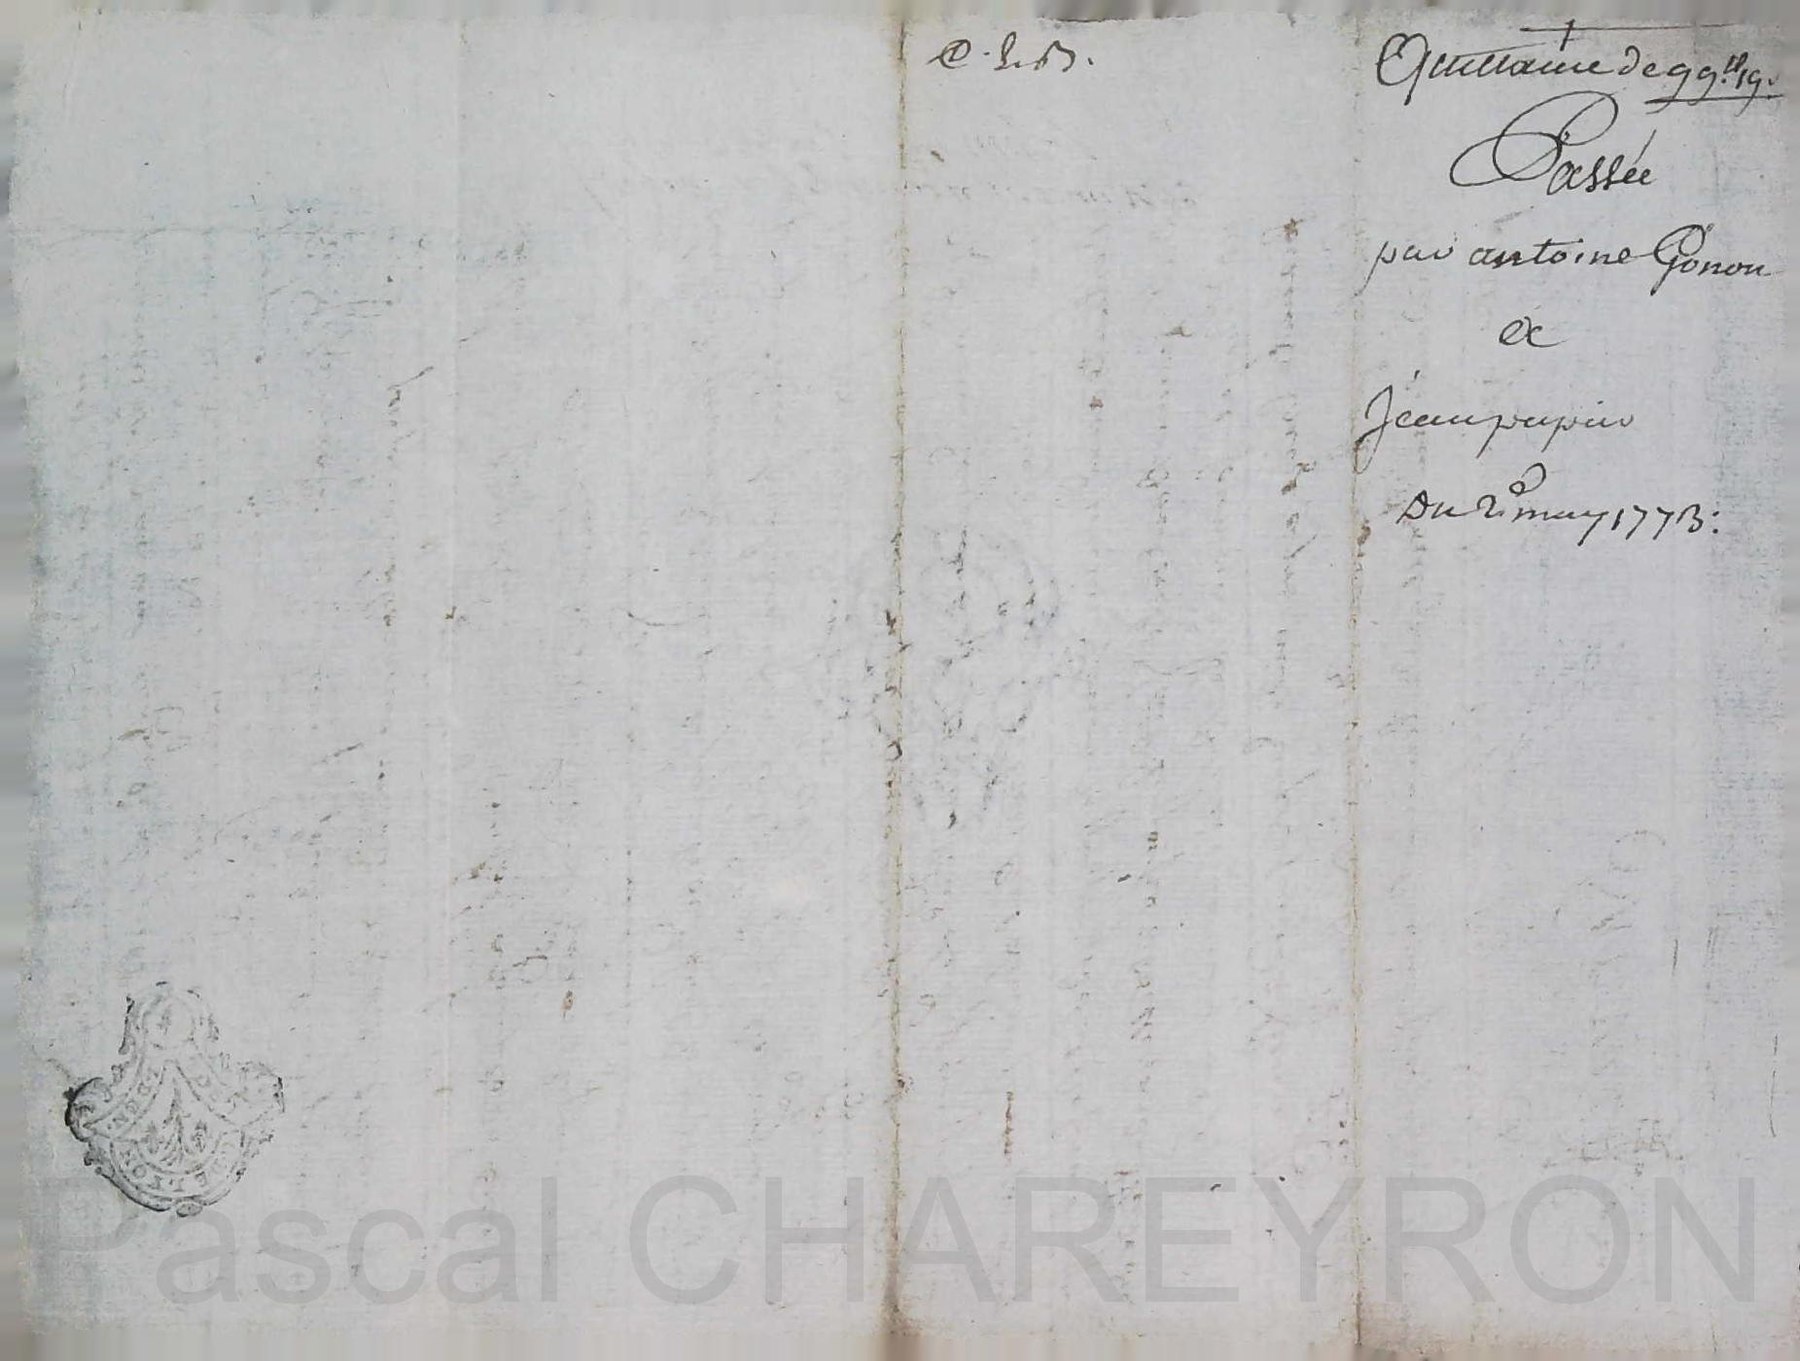 C. 2. B.
Quittance de 99.ll 19.s
Passée
par antoine Gonon
&
Jean papin
Du 2.e may 1773:
Pascal CHAREYRON